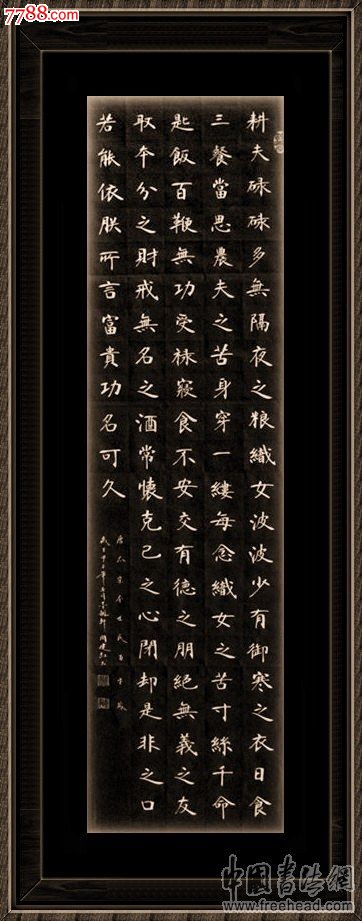 7788.com
耕夫碌碌多無隔夜之粮織女波波少有御寒之衣日食
三餐當思農夫之苦身穿一縷每念織女之苦寸絲千命
匙飯百鞭無功受禄寢食不安交有德之朋絕無義之友
取本分之財戒無名之酒常懷克己之心閉却是非之口
若能依朕所言富貴功名可久
唐太宗李世民百字箴
中國書法網
www.freehead.com